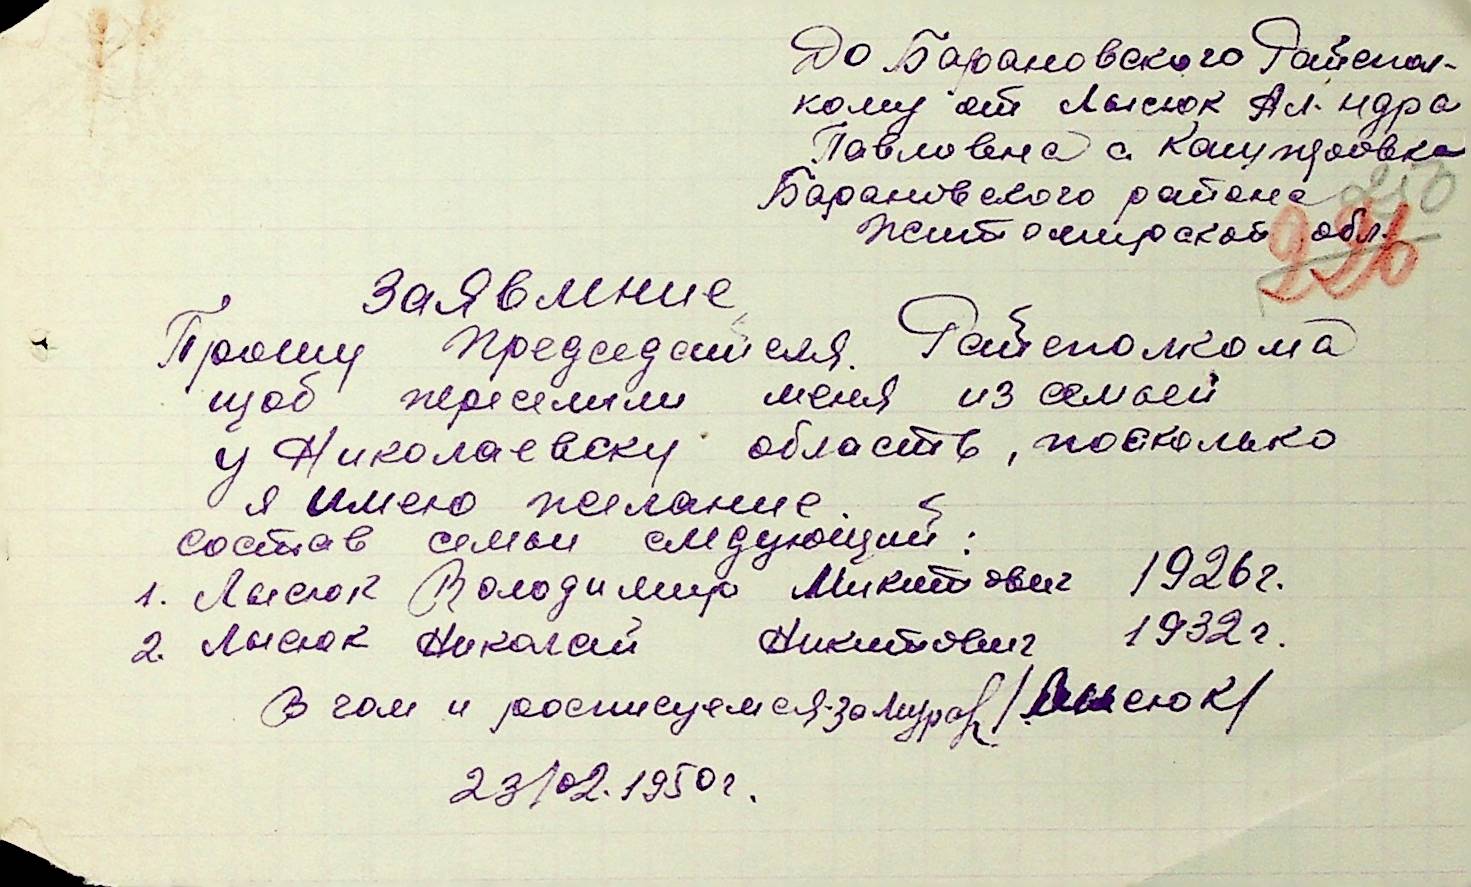 До Барановского Райспол-
кому от Лысюк Ал-ндра
Павловена с.
Барановского района
Житомирской обл.
226
Заявление
Прошу председателя Райсполкома
щоб переселили меня из семьей
у Николаевску область, посколько
я имею желание.
состав семьи следующий:
1. Лысюк Володимир Микитович 1926г.
2. Лысюк Николай Никитович 1932г.
В чом и росписуемся /Лысюк/
23/02.1950г.